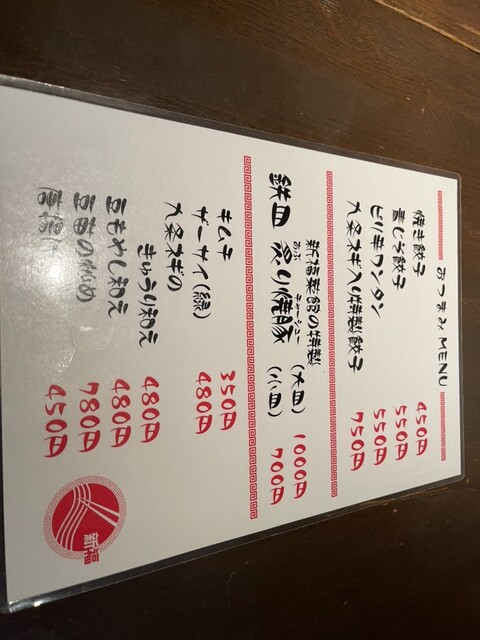 おつまみ MENU
焼き餃子 450円
青じそ餃子 550円
ピリ辛ワンタン 550円
九条ネギ入り特製餃子 750円
新福菜館の特製
鉄皿 炙り焼豚 (大皿) 1000円
あぶ チャーシュー
(小皿) 700円
キムチ 350円
ザーサイ(緑) 480円
九条ネギの
きゅうり和え 480円
豆もやし和え 480円
豆苗の炒め 780円
唐揚げ 450円
新福